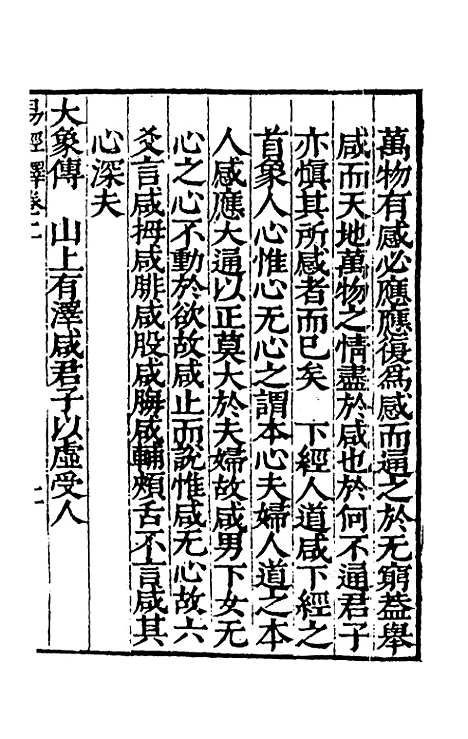 萬物有感必應應復爲感而通之於无窮葢舉
咸而天地萬物之情盡於咸也於何不通君子
亦愼其所感者而已矣　下經人道咸下經之
首象人心惟心无心之謂本心夫婦人道之本
人感應大通以正莫大於夫婦故咸男下女无
心之心不動於欲故咸止而說惟咸无心故六
爻言咸拇咸腓咸股咸脢咸輔頰舌不言咸其
心深夫
大象傳　山上有澤咸君子以虛受人
易經繹卷二　二